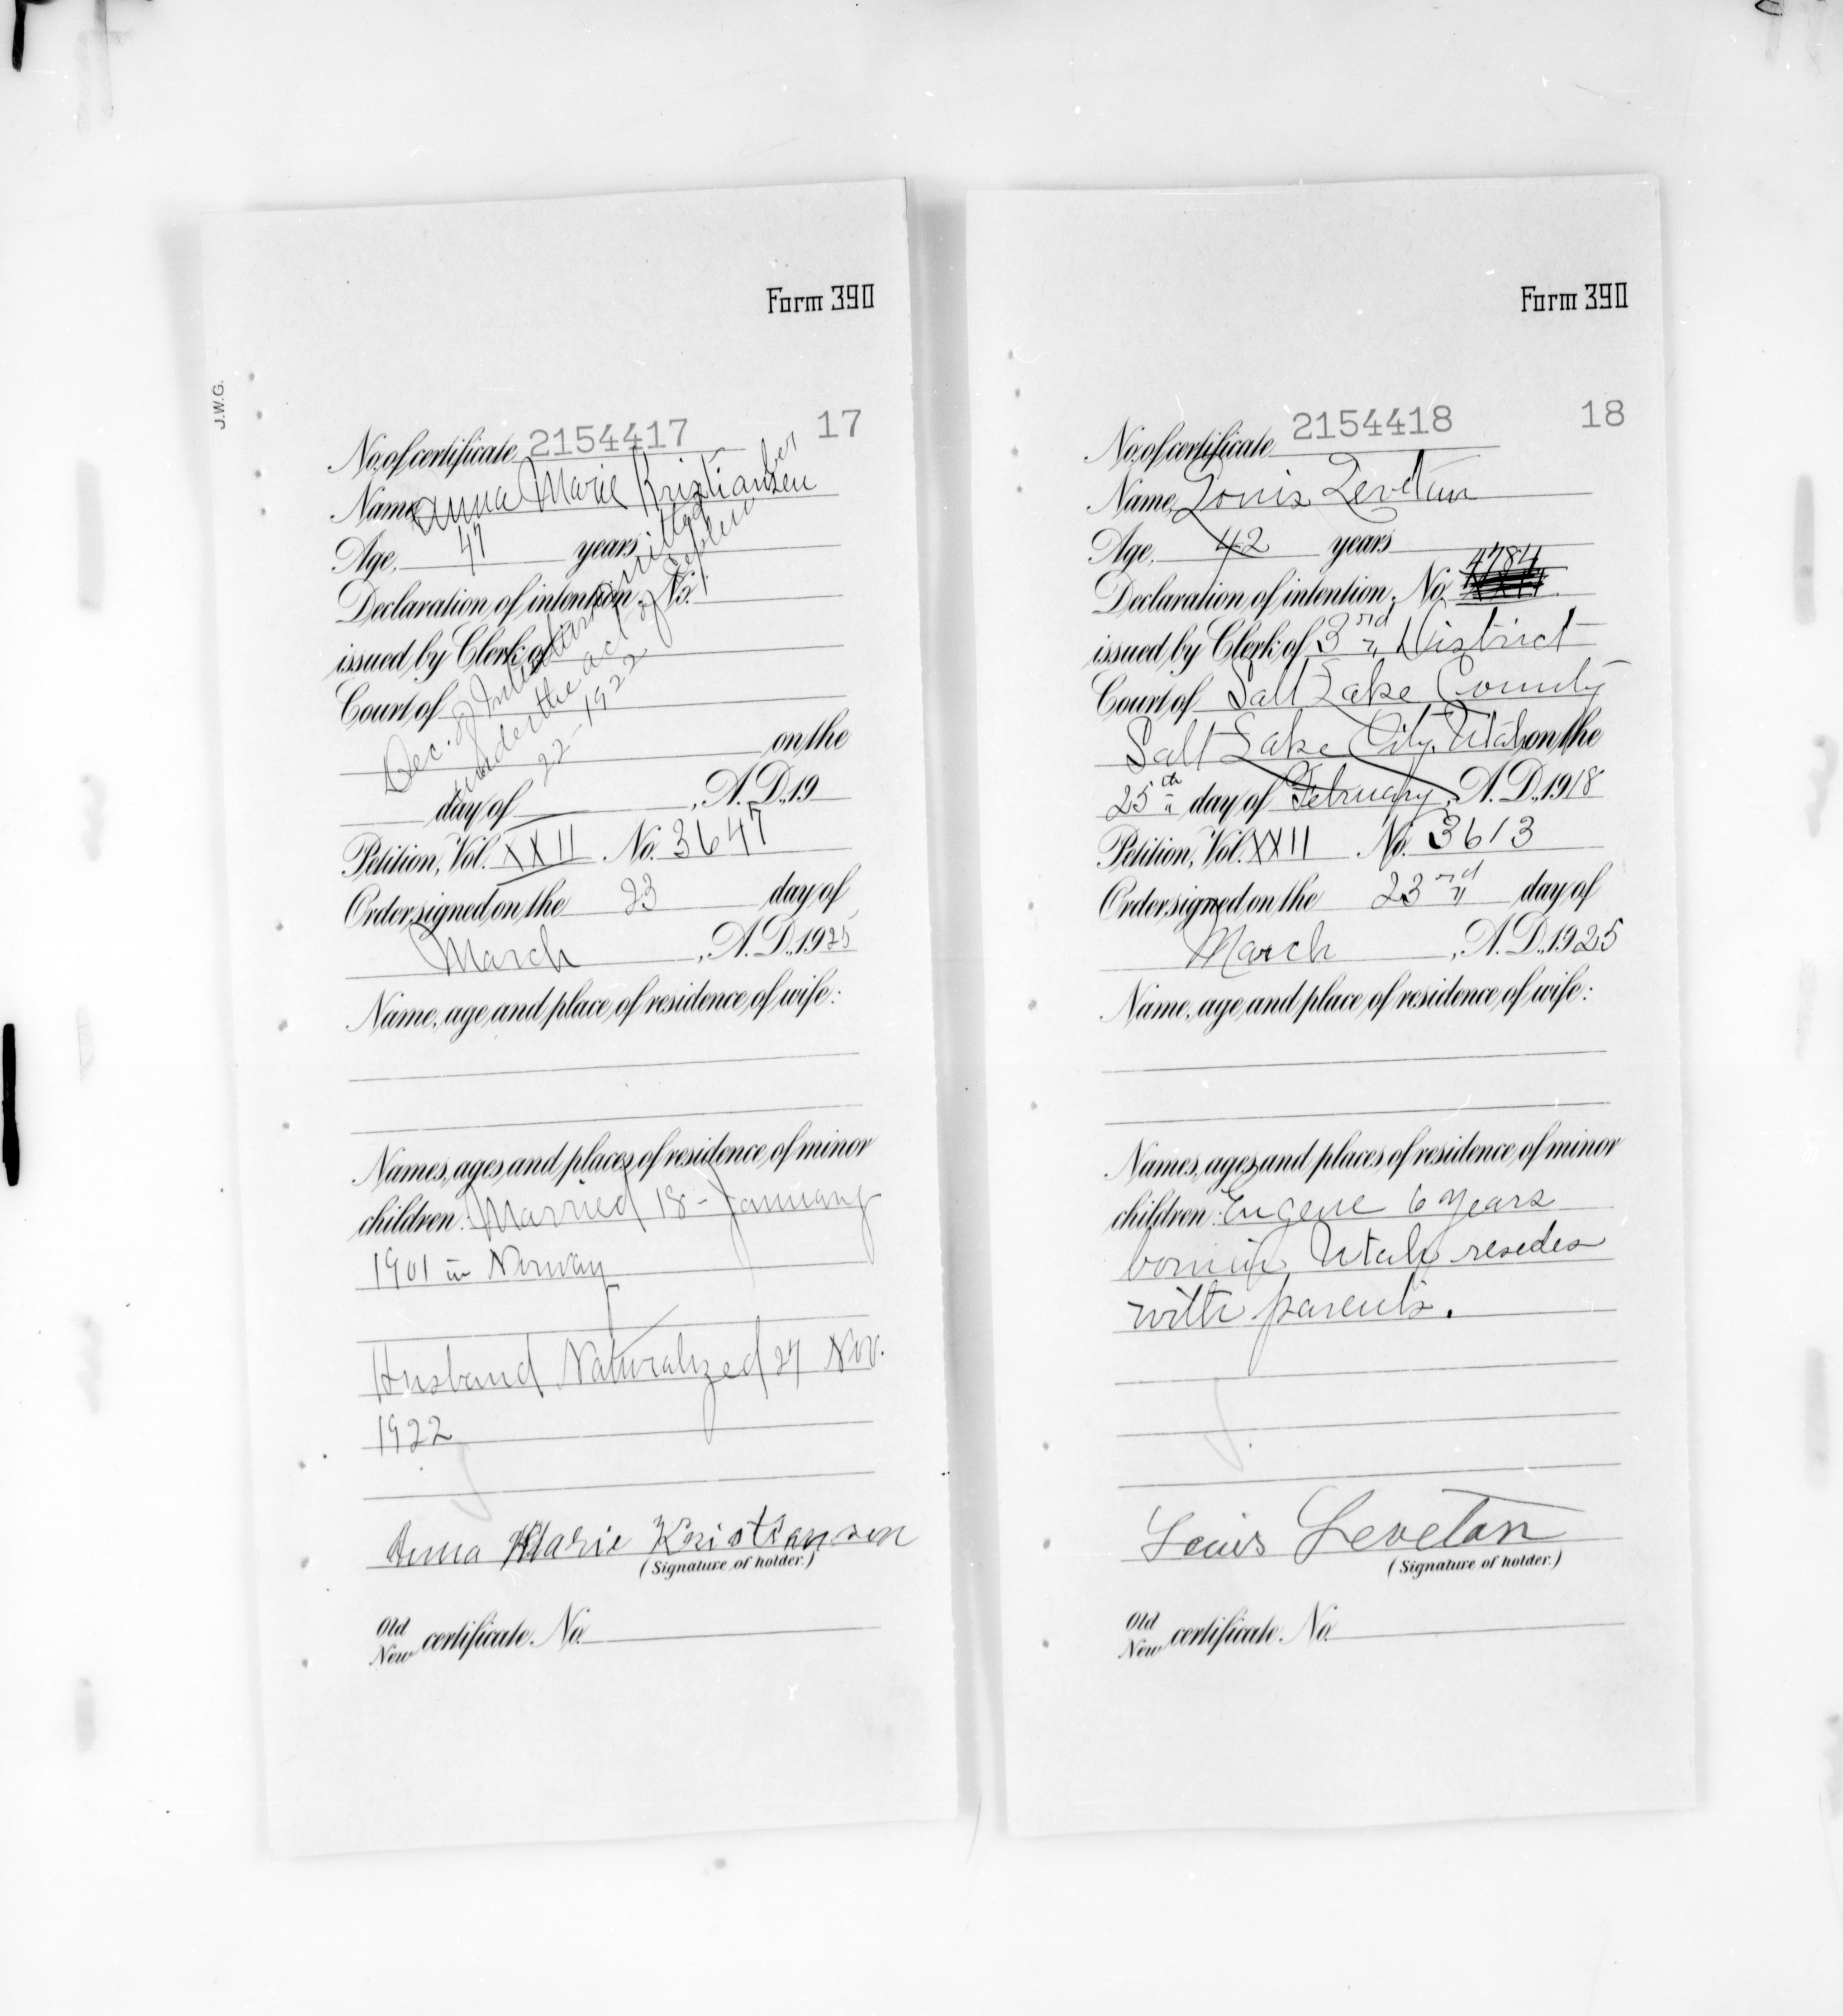 J.W.G.
Form 390
17
No. of certificate 2154417
Name, Anna Marie Kristiansen
Age, 47 years
Declaration of intention, No.
issued by Clerk of
Court of
on the
day of , A. D., 19
Dec. of Intention omitted
under the act of September
22-1922
Petition, Vol. XXII No. 3647
Order signed on the 23 day of
March , A. D., 1925
Name, age and place of residence of wife:
Names, ages and places of residence of minor
children: Married 18 - January
1901 in Norway
Husband Naturalized 27 Nov.
1922
Anna Marie Kristiansen
(Signature of holder.)
Old
New certificate. No.
Form 390
18
No. of certificate 2154418
Name, Louis Levetan
Age, 42 years
Declaration of intention, No. 4784
issued by Clerk of 3rd " District
Court of Salt Lake County
Salt Lake City, Utah on the
25th " day of February, A. D., 1918
Petition, Vol. XXII No. 3613
Order signed on the 23rd " day of
March , A. D., 1925
Name, age and place of residence of wife:
Names, ages and places of residence of minor
children: Eugene 6 years
born in Utah resedes
with parents.
Louis Levetan
(Signature of holder.)
Old
New certificate. No.